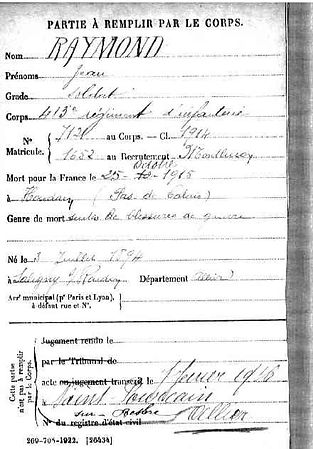 PARTIE À REMPLIR PAR LE CORPS.
Nom RAYMOND
Prénoms Jean
Grade Soldat
Corps 413e régiment d'infanterie
Nº 7121 au Corps. — Cl. 1914
Matricule. 1682 au Recrutement Montluçon
Octobre
Mort pour la France le 25 1915
à (Pas de Calais)
Genre de mort suite de blessures de guerre
Né le 3 Juillet 1894
à Saligny s/ Roudon Département Allier
Arrt municipal (pr Paris et Lyon),
à défaut rue et Nº.
Cette partie
n'est pas à remplir
par le Corps.
Jugement rendu le
par le Tribunal de
acte ou jugement transcrit le 1 février 1916
à Saint Pourçain
sur Besbre Allier
Nº du registre d'état civil
269-708-1922. [26434]